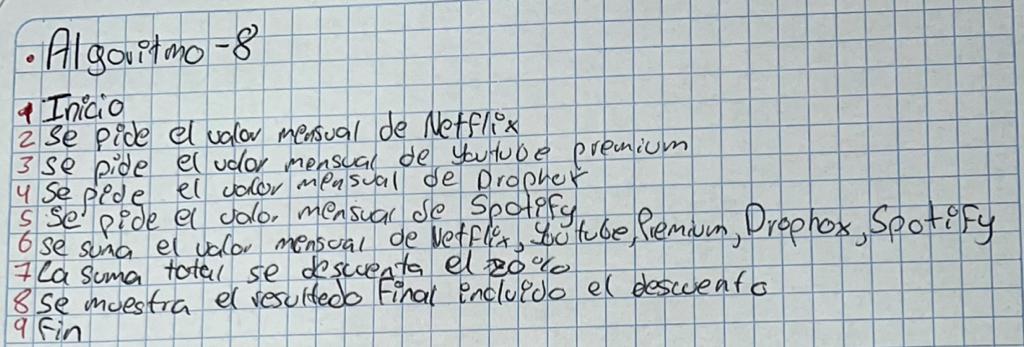 • Algoritmo - 8
1 Inicio
2 Se pide el valor mensual de Netflix
3 se pide el valor mensual de youtube premium
4 Se pide el valor mensual de Drophox
5 Se pide el valor mensual de Spotify
6 se suma el valor mensual de Netflix, Youtube, Premium, Drophox, Spotify
7 la suma total se descuenta el 20%
8 Se muestra el resultado final incluido el descuento
9 Fin